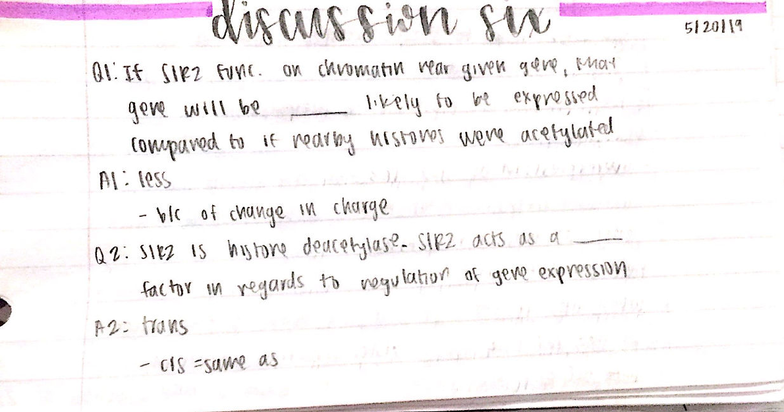 discussion six
5/20/19
Q1: If SIR2 func. on chromatin near given gene, that
gene will be ____ likely to be expressed
compared to if nearby histones were acetylated
A1: less
- b/c of change in charge
Q2: SIR2 is histone deacetylase. SIR2 acts as a ____
factor in regards to regulation of gene expression
A2: trans
- cis = same as